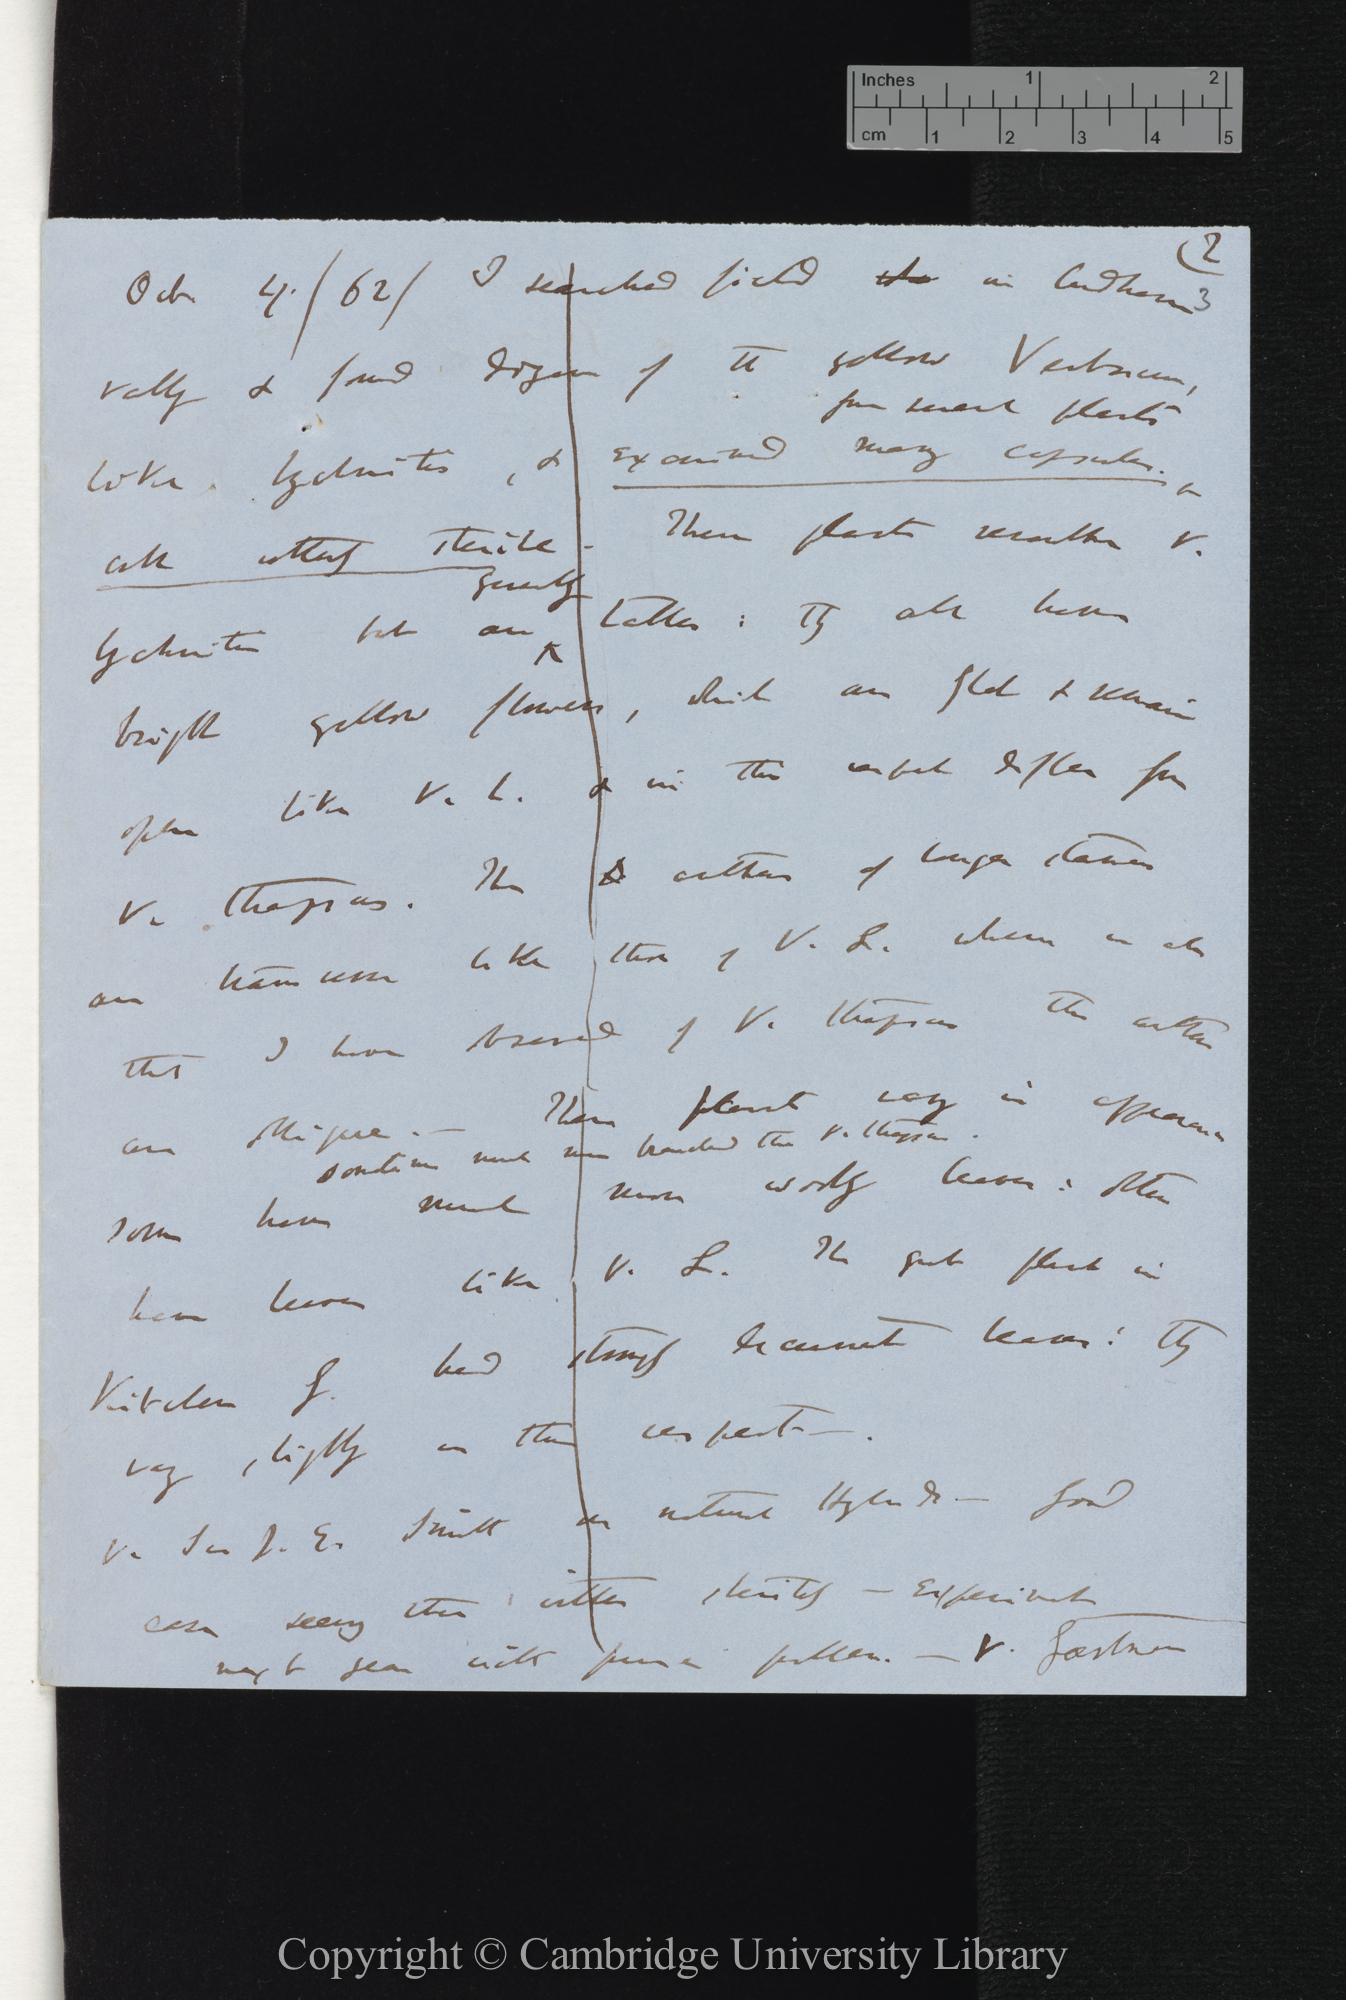 Inches 1 2
cm 1 2 3 4 5
(2
3
Octr 4./62/ I searched field in Cudham
valley & found dozen of the yellow Verbascum,
from several plants
like lychnitis, & examined many capsules.
all utterly sterile. These plants resemble V.
greatly
lychnitis but are taller: They all have
bright yellow flowers, which are flat & remain
open like V. L. & in this respect differ from
V. thapsus. The anthers of longer stamens
are transverse like those of V. L. whereas in all
that I have observed of V. thapsus the anthers
are oblique.— These plants vary in appearance
sometimes much more branched than V. thapsus.
some have much more wooly leaves: others
have leaves like V. L. The great plant in
Kitchen G. had strongly decurrent leaves: They
vary slightly in this respect—.
V. Sir J. E. Smith on natural Hybrids— Good
case seeing their utter sterility — Experiment
next year with pure pollen. — V. Gærtner
Copyright © Cambridge University Library